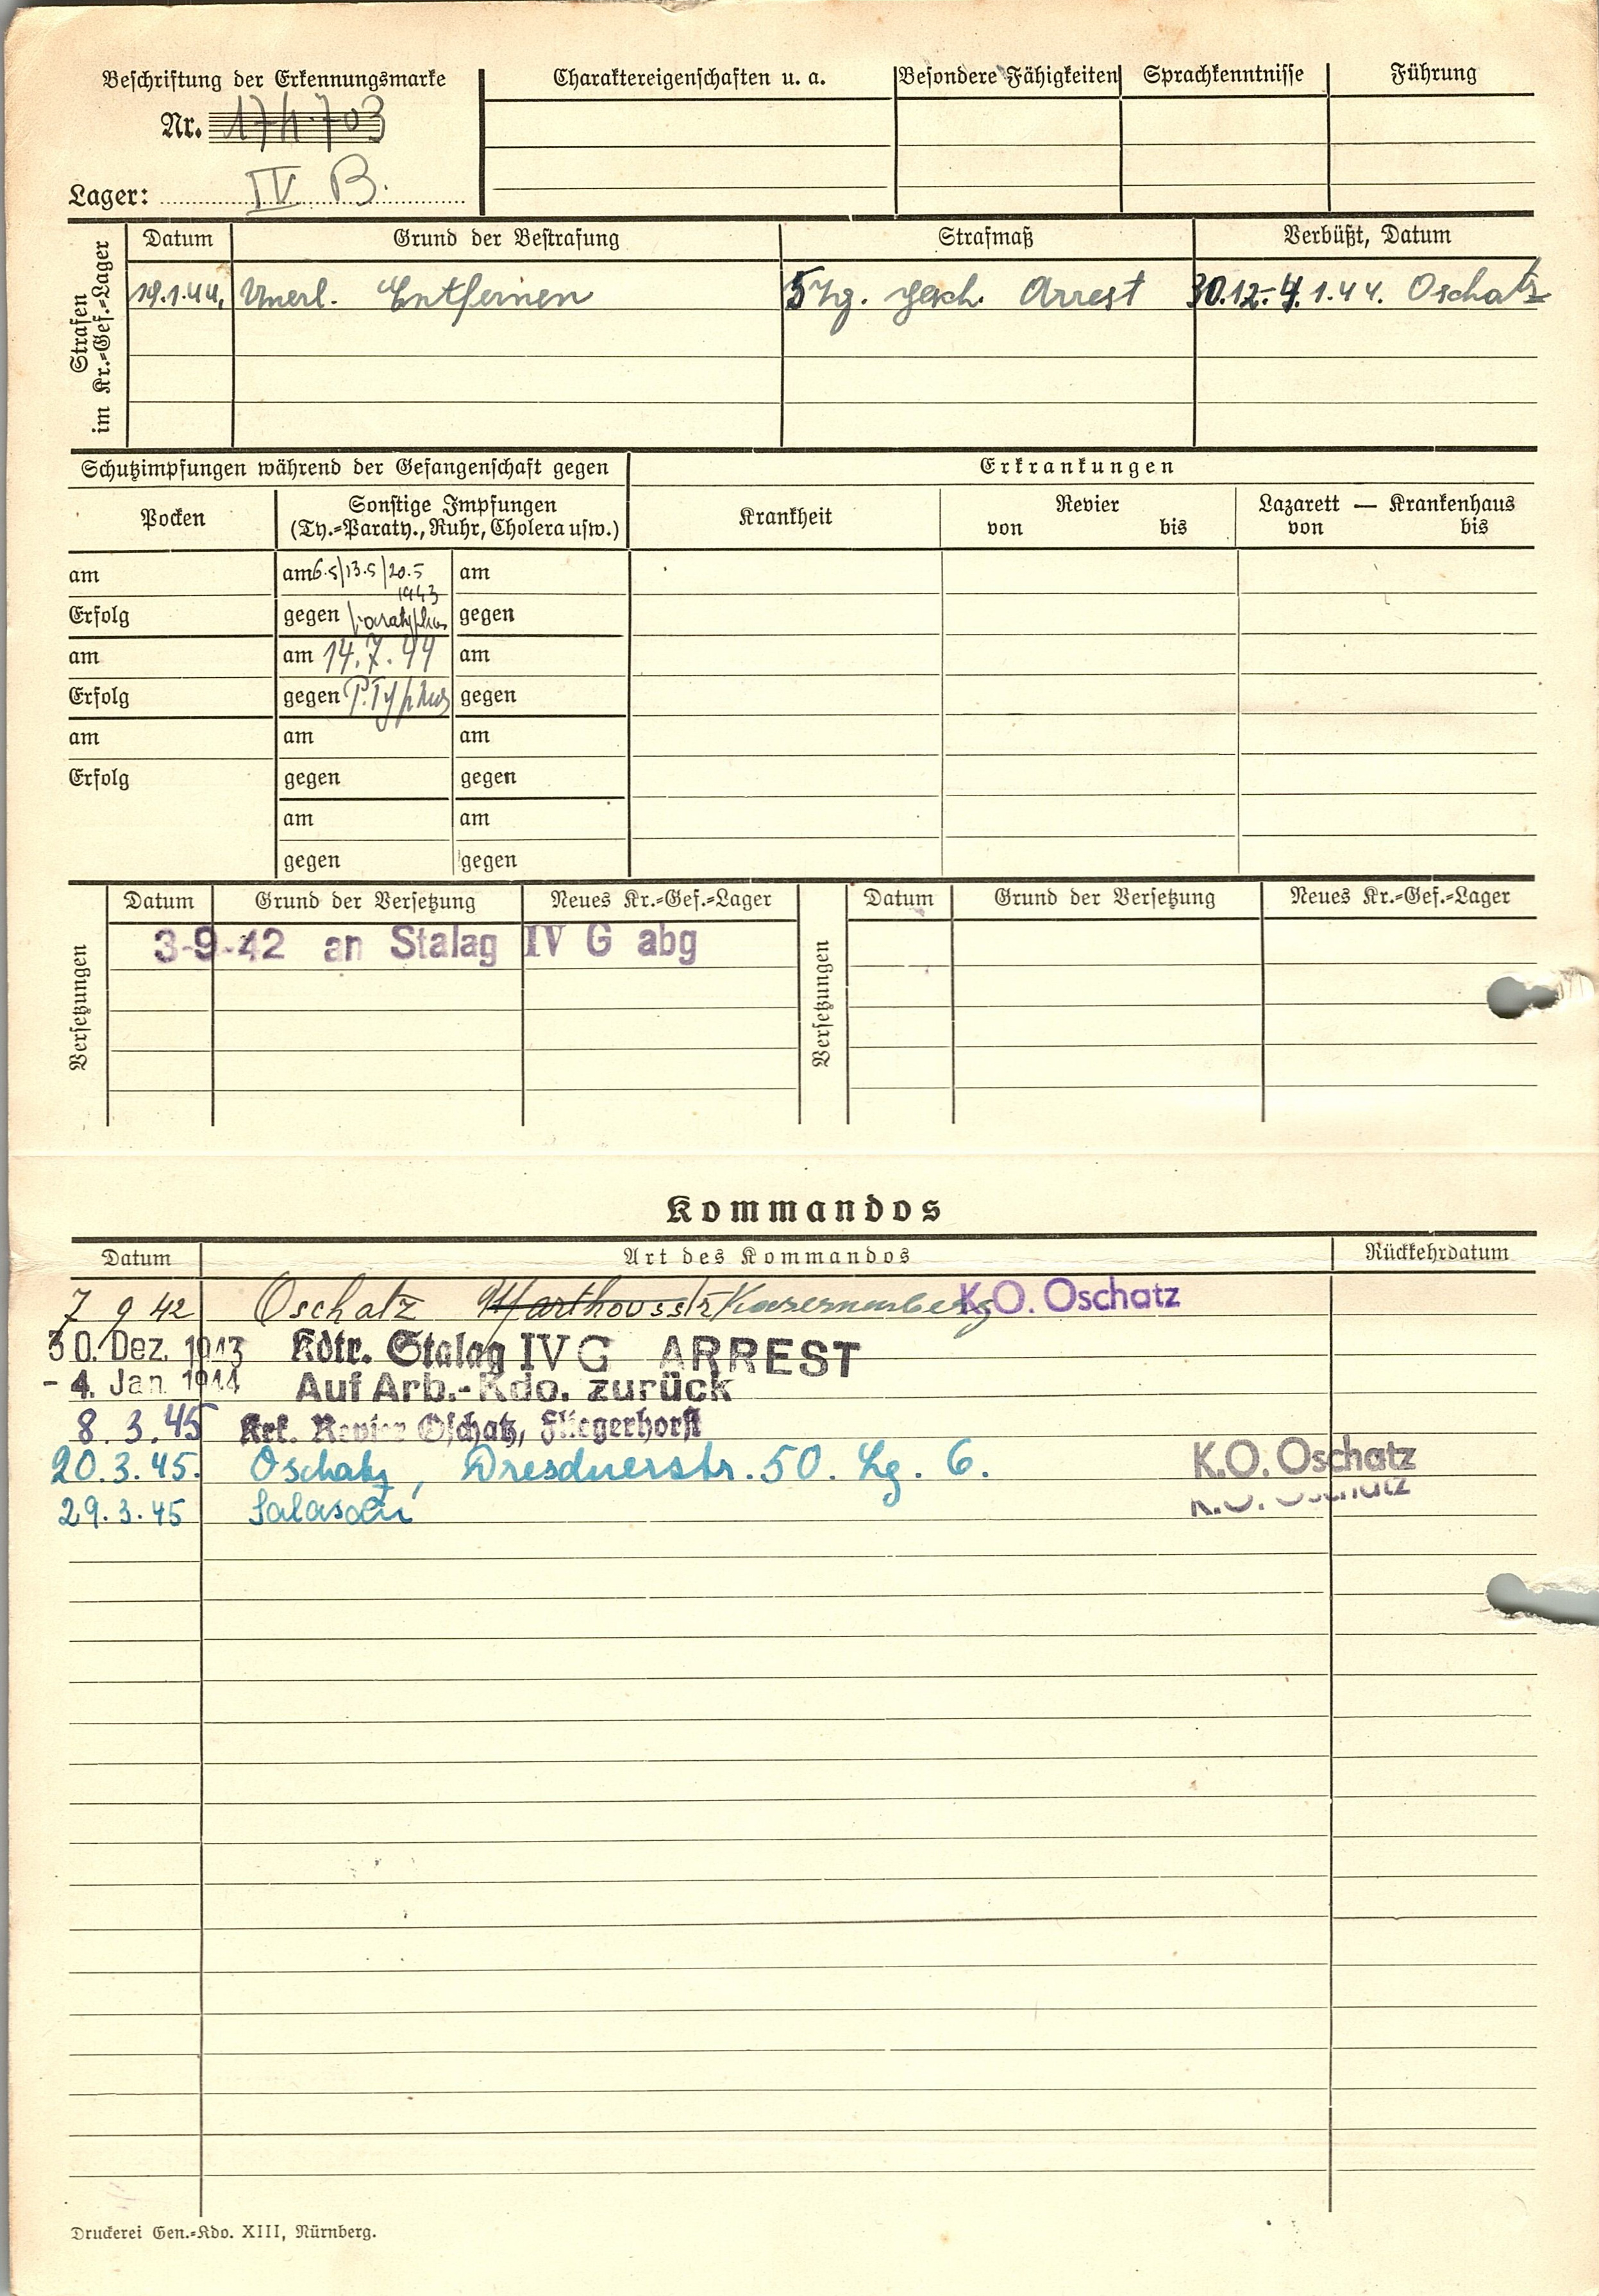 Beschriftung der Erkennungsmarke
Nr. 174703
Lager: IV B.
Charaktereigenschaften u. a.
Besondere Fähigkeiten
Sprachkenntnisse
Führung
Strafen im Kr.=Gef.=Lager
Datum Grund der Bestrafung Strafmaß Verbüßt, Datum
19.1.44, Unerl. Entfernen 5 Tg. gesch. Arrest 30.12.-4.1.44. Oschatz
Schutzimpfungen während der Gefangenschaft gegen
Erkrankungen
Pocken
Sonstige Impfungen
(Ty.=Paraty., Ruhr, Cholera usw.)
Krankheit
Revier
von bis
Lazarett — Krankenhaus
von bis
am am 6.5/13.5/20.5 am
1943
Erfolg gegen Paratyphus gegen
am am 14.7.44 am
Erfolg gegen P.Typhus gegen
am am am
Erfolg gegen gegen
am am
gegen gegen
Versetzungen
Datum Grund der Versetzung Neues Kr.=Gef.=Lager
3-9-42 an Stalag IV G abg
Versetzungen
Datum Grund der Versetzung Neues Kr.=Gef.=Lager
Kommandos
Datum Art des Kommandos Rückkehrdatum
7 9 42 Oschatz K.O. Oschatz
30. Dez. 1943 Kdtr. Stalag IV G ARREST
- 4. Jan. 1944 Auf Arb.-Kdo. zurück
8. 3. 45 Krk. Revier Oschatz, Fliegerhorst
20.3.45. Oschatz, Dresdnerstr. 50. Lg. 6. K.O. Oschatz
29.3.45 K.O. Oschatz
Druckerei Gen.=Kdo. XIII, Nürnberg.